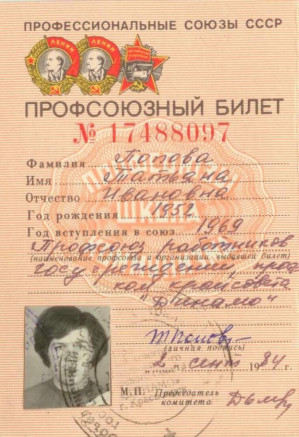 ПРОФЕССИОНАЛЬНЫЕ СОЮЗЫ СССР
ЛЕНИН ЛЕНИН
ПРОФСОЮЗНЫЙ БИЛЕТ
№ 17488097
Фамилия Попова
Имя Татьяна
Отчество Ивановна
Год рождения 1952
Год вступления в союз 1969
Профсоюз работников
(наименование профсоюза и организации, выдавшей билет)
госучреждений,
ком крайсовета
"Динамо"
(личная подпись)
2 сент 1984 г.
М.П. Председатель
комитета